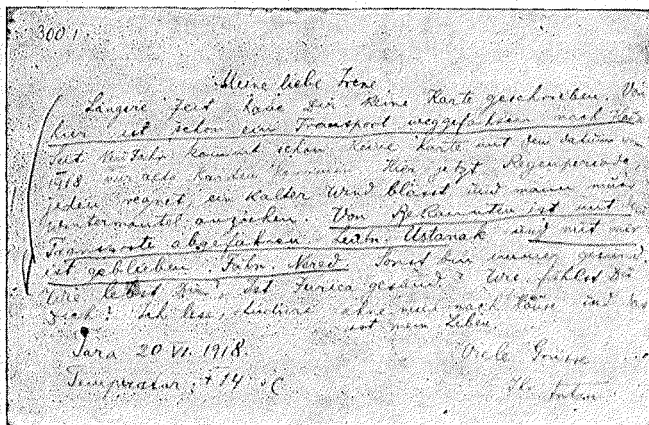 3001
Meine liebe Irene
Längere Zeit habe Dir keine Karte geschrieben. Von
hier ist schon ein Transport weggefahren nach
Seit Neujahr kommt schon keine Karte mit dem datum von
1918 nur alte Karten kommen. Hier jetzt Regenperiode,
jeden regnet, ein Kalter Wind blässt und mann muss
wintermantel anziehen. Von Bekannten ist mit
Transporte abgefahren Leutn. Ustanak und mit mir
ist geblieben Fähn. Nered. Sonst bin immer gesund.
Wie lebst Du? Ist Jurica gesund? Wie fühlst Du
Dich? Ich lese, studiere nach Hause und das
ist mein Leben.
Jara 20 VI. 1918. Viele Grüsse
Temperatur: + 14 °C
Anton